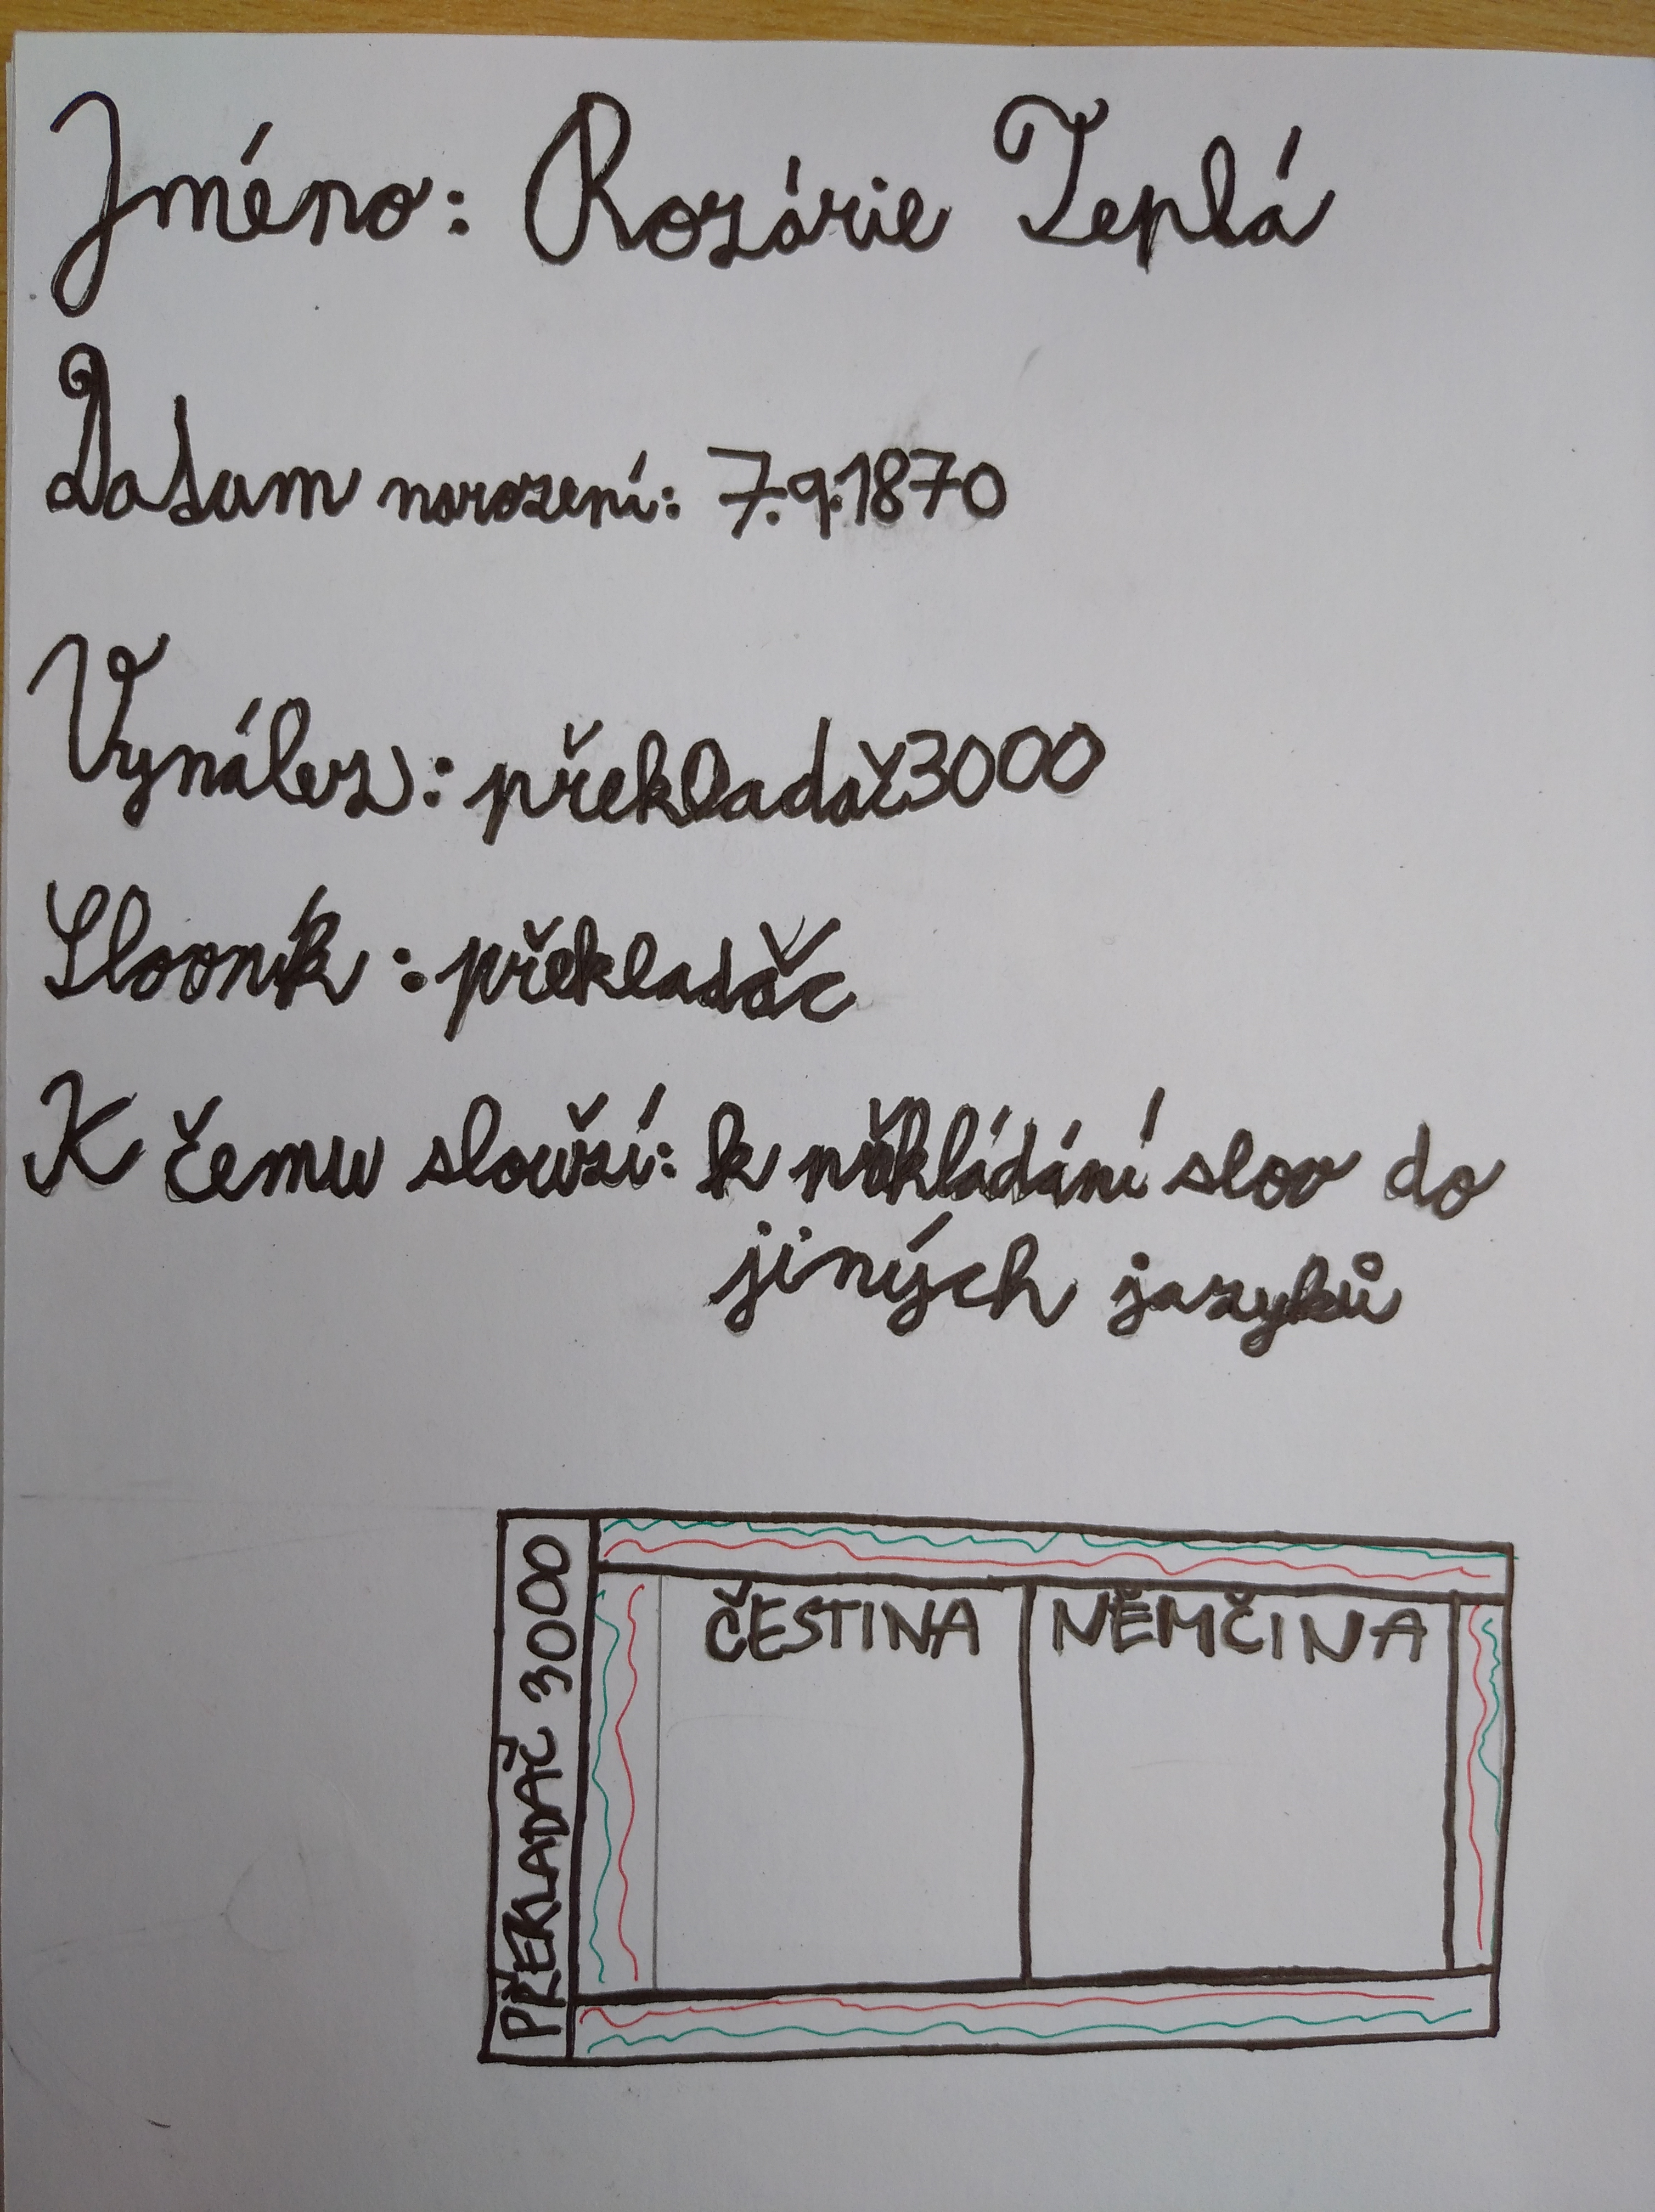 Jméno: Rozárie Teplá
Datum narození: 7.9.1870
Vynález: překladač3000
Slovník: překladač
K čemu slouží: k překládání slov do
jiných jazyků
PŘEKLADAČ 3000
ČESTINA
NĚMČINA